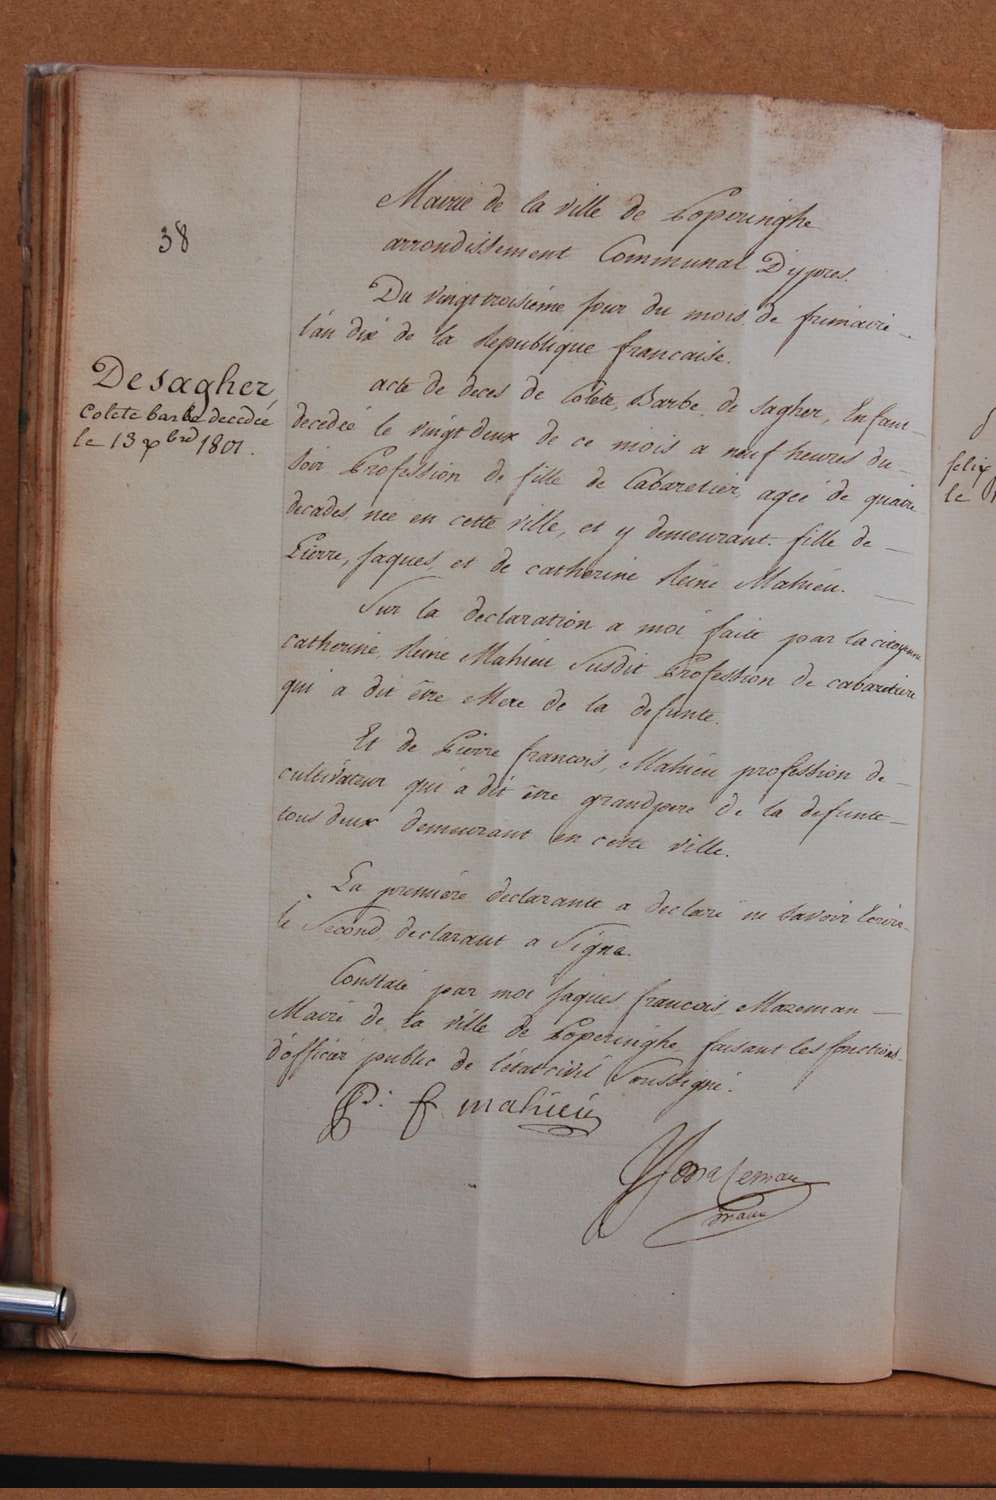 38
Desagher,
Colete barbe decedée
le 13 xbre 1801.
Mairie de la ville de Poperinghe
arrondissement Communal Dÿpres.
Du vingttroisiéme jour du mois de frimaire
l'an dix de la Republique francaise.
acte de deces de Colete, Barbe, de sagher, Enfant
decedée le vingtdeux de ce mois a neuf heures du
soir Profession de fille de Cabaretier, ageé de quatre
decades, nee en cette ville, et y demeurant. fille de
Pierre, Jaques, et de catherine Reine Mahieu.
Sur la declaration a moi faite par la citoyenne
catherine, Reine Mahieu Susdit Profession de cabaretiere
qui a dit être Mere de la defunte.
Et de Pierre francois, Mahieu profession de
cultivateur qui a dit être grandpere de la defunte
tous deux demeurant en cette ville.
La premiere declarante a declaré ne savoir Ecrire
le Second, declarant a Signe.
Constaté par moi Jaques francois, Mazeman
Maire de la ville de Poperinghe faisant les fonctions
d'officier public de l'etat civil Soussigné.
P: f mahieu
Mazeman
maire
felix
le